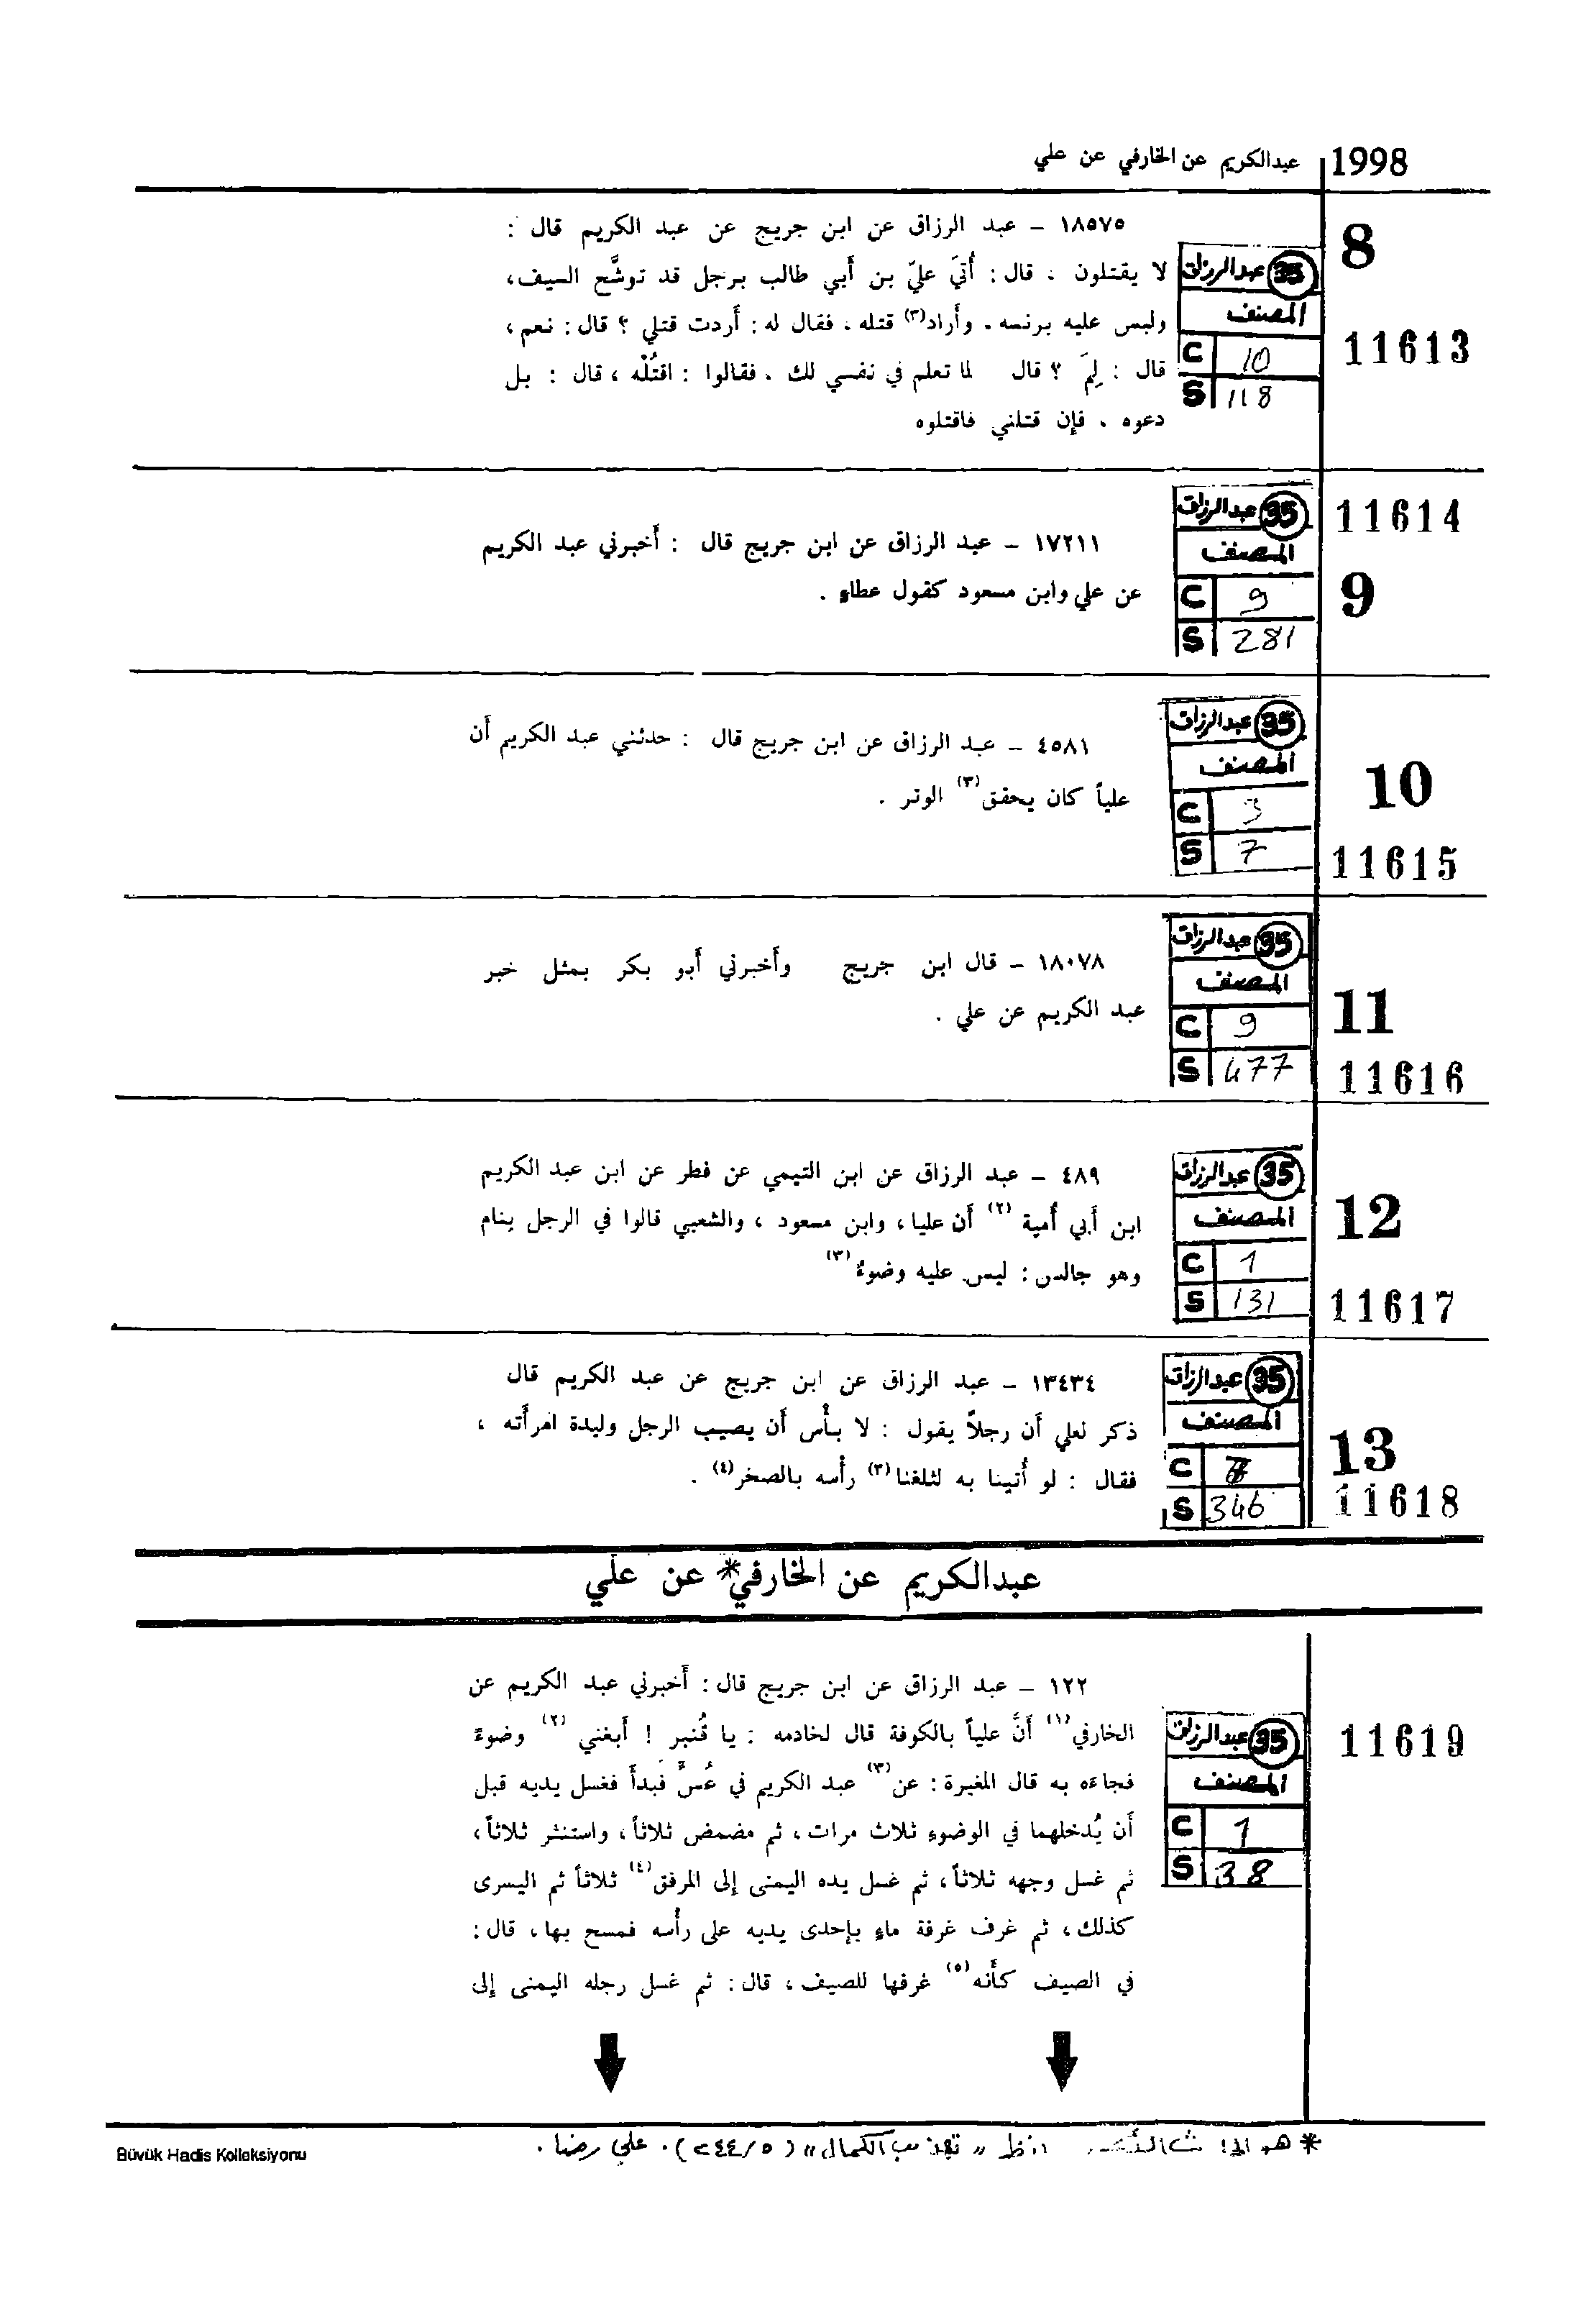 1998 عبدالكريم عن الخارفي عن علي
8
11613
35 عبدالرزاق
المصنف
C 10
S 118
١٨٥٧٥ – عبد الرزاق عن ابن جريج عن عبد الكريم قال :
لا يقتلون ، قال : أُتيَ عليّ بن أبي طالب برجل قد توشَّح السيف،
ولبس عليه برنسه، وأراد(٣) قتله، فقال له: أردت قتلي ؟ قال: نعم،
قال : لِمَ ؟ قال لما تعلم في نفسي لك ، فقالوا : اقتُلْه ، قال : بل
دعوه ، فإن قتلني فاقتلوه
11614
9
35 عبدالرزاق
المصنف
C 9
S 281
١٧٢١١ – عبد الرزاق عن ابن جريج قال : أخبرني عبد الكريم
عن علي وابن مسعود كقول عطاءٍ .
10
11615
35 عبدالرزاق
المصنف
C 3
S 7
٤٥٨١ – عبد الرزاق عن ابن جريج قال : حدثني عبد الكريم أن
علياً كان يحقق(٣) الوتر .
11
11616
35 عبدالرزاق
المصنف
C 9
S 477
١٨٠٧٨ – قال ابن جريج وأخبرني أبو بكر بمثل خبر
عبد الكريم عن علي .
12
11617
35 عبدالرزاق
المصنف
C 1
S 131
٤٨٩ – عبد الرزاق عن ابن التيمي عن فطر عن ابن عبد الكريم
ابن أبي أُمية (٢) أن عليا، وابن مسعود ، والشعبي قالوا في الرجل ينام
وهو جالس : ليس عليه وضوءٌ(٣)
13
11618
35 عبدالرزاق
المصنف
C 7
S 346
١٣٤٣٤ – عبد الرزاق عن ابن جريج عن عبد الكريم قال
ذكر لعلي أن رجلاً يقول : لا بأس أن يصيب الرجل وليدة امرأته ،
فقال : لو أُتينا به لثلغنا(٣) رأسه بالصخر(٤) .
عبدالكريم عن الخارفي* عن علي
11619
35 عبدالرزاق
المصنف
C 1
S 38
١٢٢ – عبد الرزاق عن ابن جريج قال : أخبرني عبد الكريم عن
الخارفي(١) أنَّ علياً بالكوفة قال لخادمه : يا قُنبر ! أبغني (٢) وضوءً
فجاءه به قال المغيرة : عن(٣) عبد الكريم في عُسٍّ فبدأ فغسل يديه قبل
أن يُدخلهما في الوضوءِ ثلاث مرات، ثم مضمض ثلاثاً، واستنثر ثلاثاً،
ثم غسل وجهه ثلاثاً، ثم غسل يده اليمنى إلى المرفق(٤) ثلاثاً ثم اليسرى
كذلك، ثم غرف غرفة ماءٍ بإحدى يديه على رأسه فمسح بها، قال:
في الصيف كأنه(٥) غرفها للصيف، قال: ثم غسل رجله اليمنى إلى
* هو "تهذيب الكمال" (٢٤٤/٥). علي رضا .
Büyük Hadis Kolleksiyonu